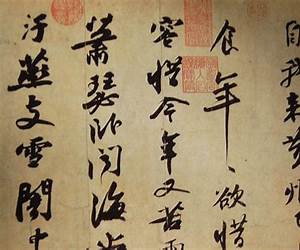 自我來黃州
食年〻欲惜
容惜今年又苦雨
蕭瑟臥聞海棠
汙燕支雪闇中